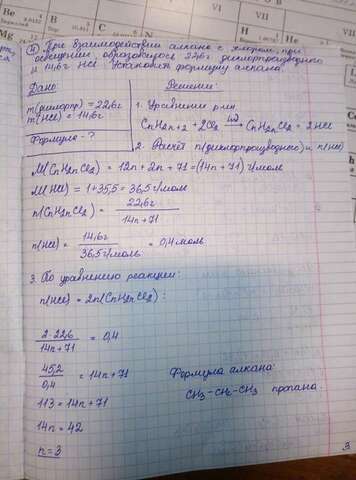 ④ При взаимодействии алкана с хлором, при
освещении образовалось 22,6г дихлорпроизводного
и 14,6г HCl. Установи формулу алкана.
Дано:
m(дихлорпр) = 22,6г
m(HCl) = 14,6г
Формула - ?
Решение:
1. Уравнение р-ии.
CnH2n+2 + 2Cl2 → CnH2nCl2 + 2HCl
2. Расчёт n(дихлорпроизводного) и n(HCl)
M(CnH2nCl2) = 12n + 2n + 71 = (14n + 71) г/моль
M(HCl) = 1 + 35,5 = 36,5 г/моль
n(CnH2nCl2) = 22,6г / 14n + 71
n(HCl) = 14,6г / 36,5 г/моль = 0,4 моль
3. По уравнению реакции:
n(HCl) = 2n(CnH2nCl2):
2·22,6 / 14n + 71 = 0,4
45,2 / 0,4 = 14n + 71
113 = 14n + 71
14n = 42
n = 3
Формула алкана:
CH3 - CH2 - CH3 пропана.
3